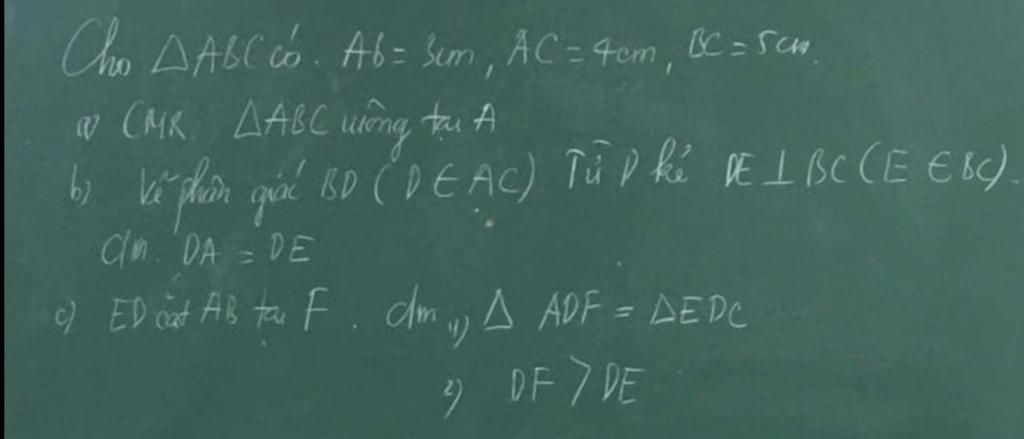 Cho △ABC có. Ab = 3cm, AC = 4cm, BC = 5cm.
a) CMR △ABC vuông tại A
b) Vẽ phân giác BD (D ∈ AC) Từ D kẻ DE ⊥ BC (E ∈ BC).
cm. DA = DE
c) ED cắt AB tại F. cm 1) △ ADF = △EDC
2) DF > DE